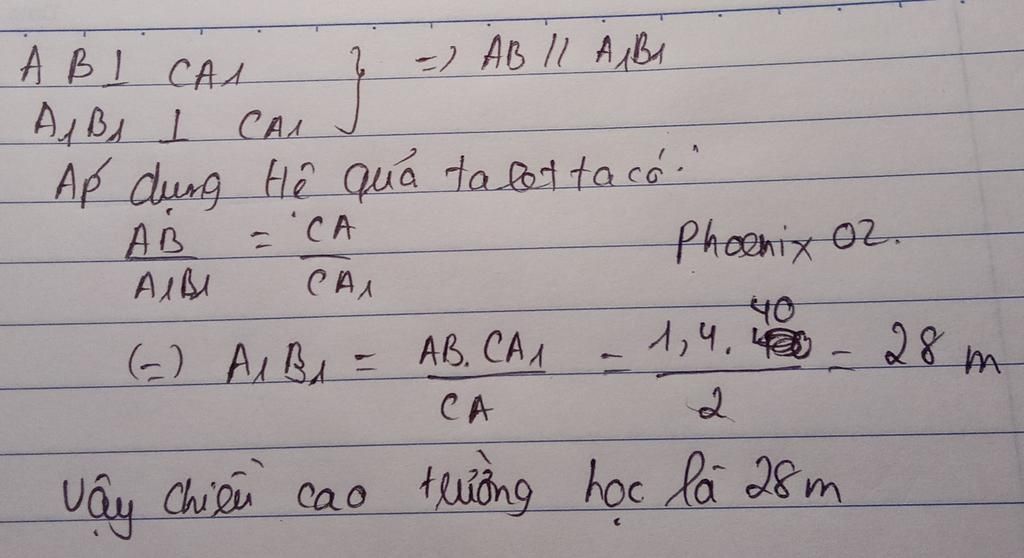 AB ⊥ CA1 } => AB // A1B1
A1B1 ⊥ CA1
Áp dụng Hệ quả ta let ta có:
AB/A1B1 = CA/CA1
Phoenix 02.
(=) A1B1 = AB.CA1/CA = 1,4.40/2 = 28 m
Vậy chiều cao trường học là 28m